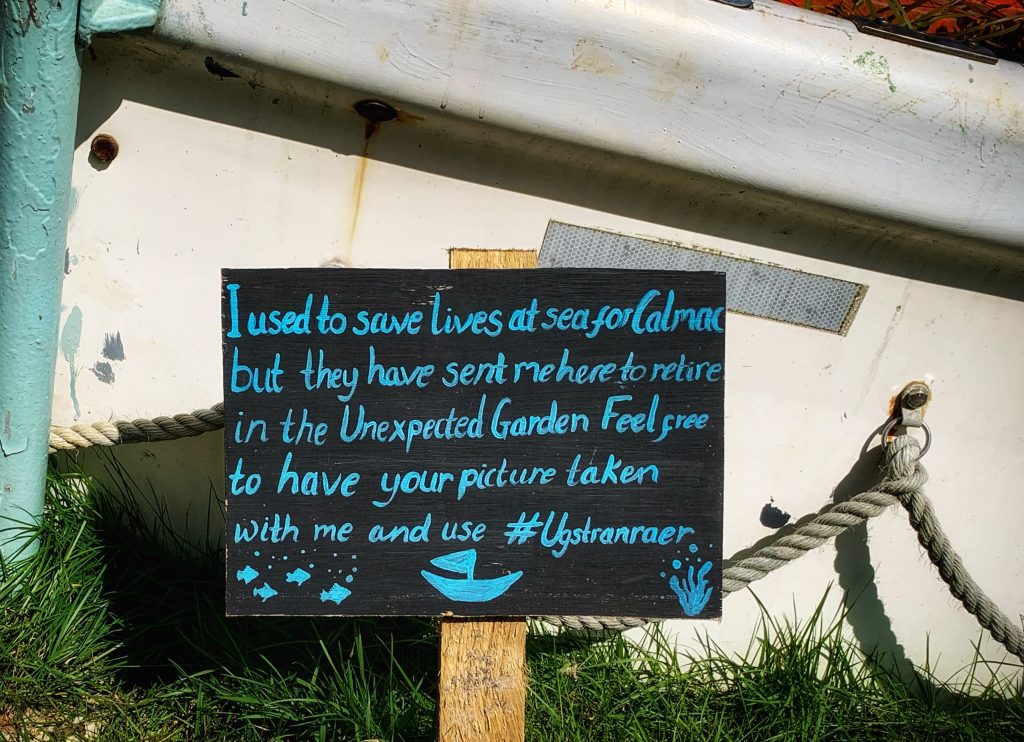 I used to save lives at sea for Calmac
but they have sent me here to retire
in the Unexpected Garden Feel free
to have your picture taken
with me and use #Ugstranraer